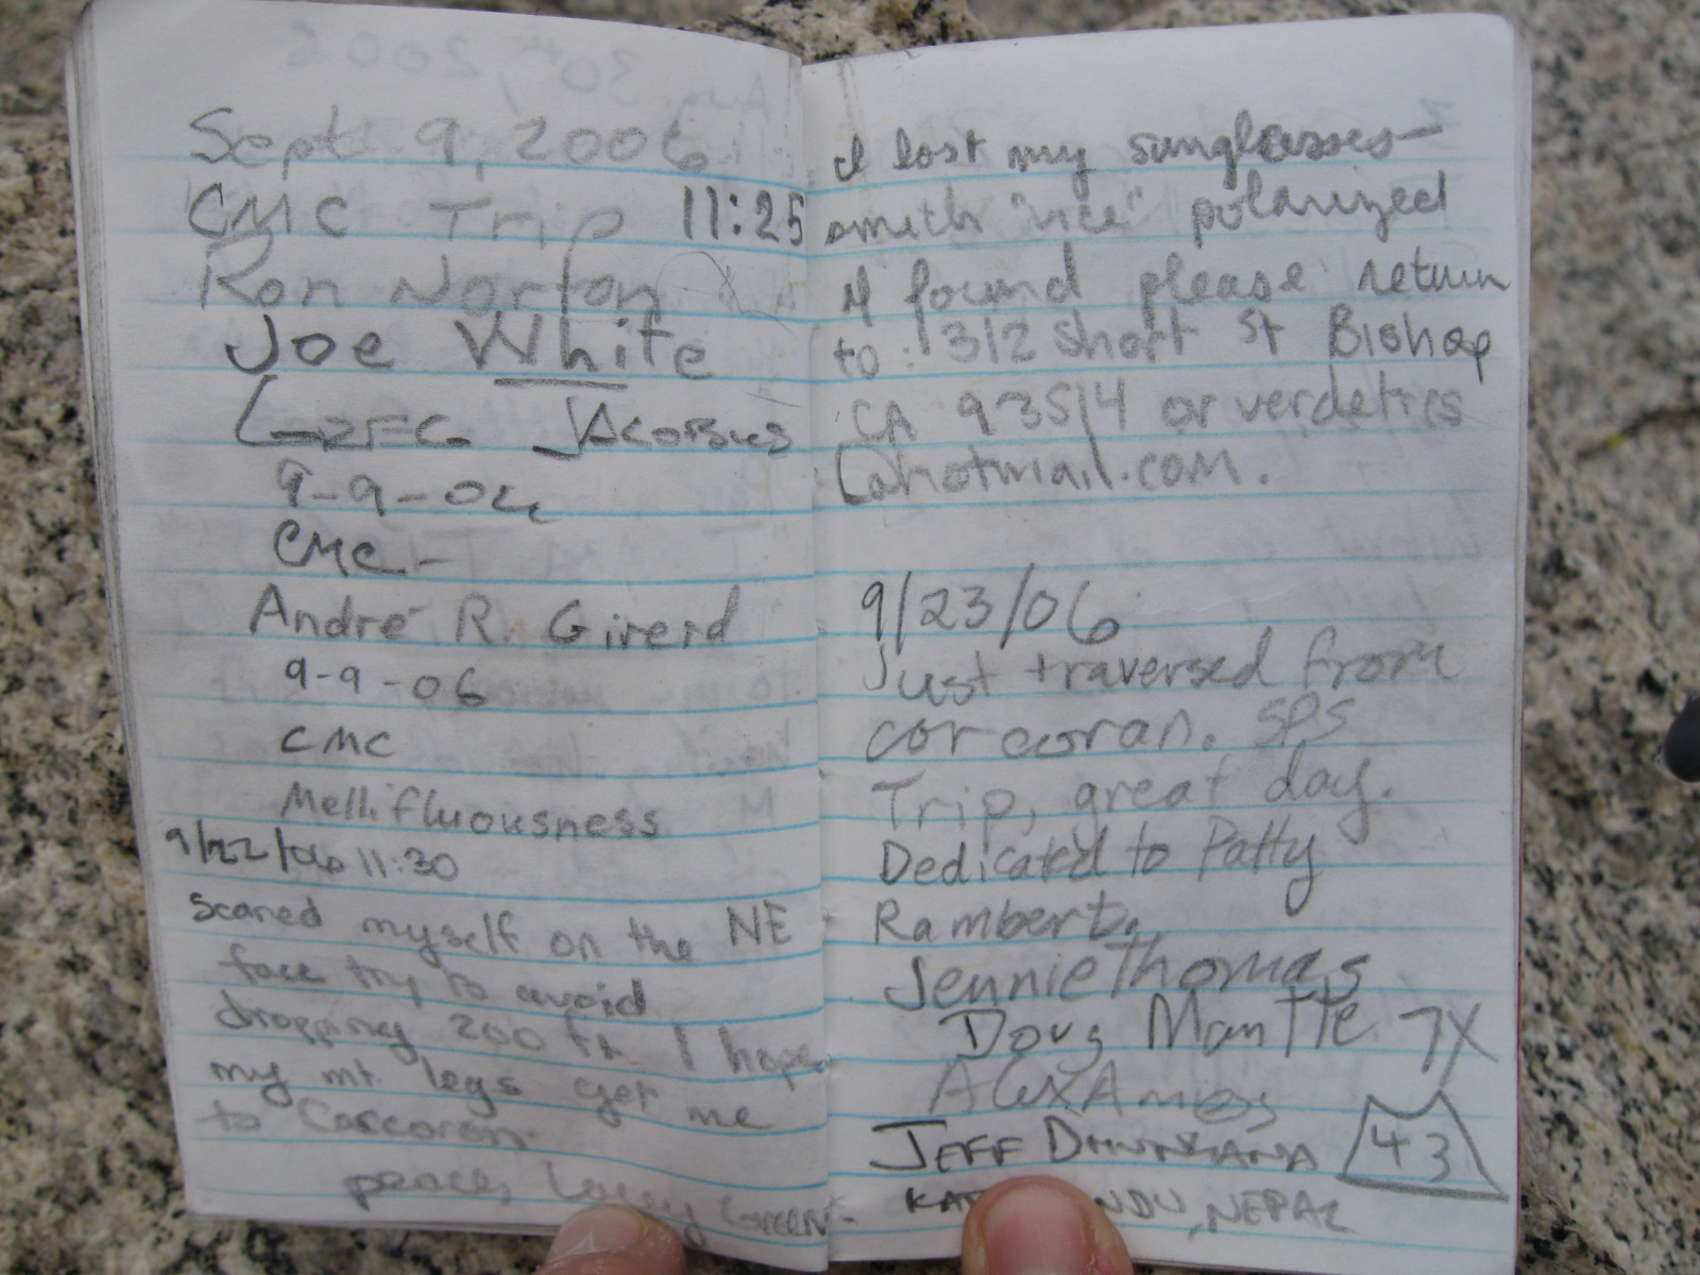 Sept 9, 2006
CMC Trip 11:25
Ron Norton
Joe White
GREG JACOBUS
9-9-06
CMC-
André R. Girerd
9-9-06
CMC
Mellifluousness
9/22/06 11:30
Scared myself on the NE
face try to avoid
dropping 200 ft. I hope
my mt. legs get me
to Corcoran.
peace, Green-
I lost my sunglasses-
smith "vice" polarized
If found please return
to: 1312 Short St Bishop
CA 93514 or verdetrcs
@hotmail.com.
9/23/06
Just traversed from
corcoran. SPS
Trip, great day.
Dedicated to Patty
Rambert.
Jennie Thomas
Doug Mantle 7X
JEFF
43
NDU, NEPAL